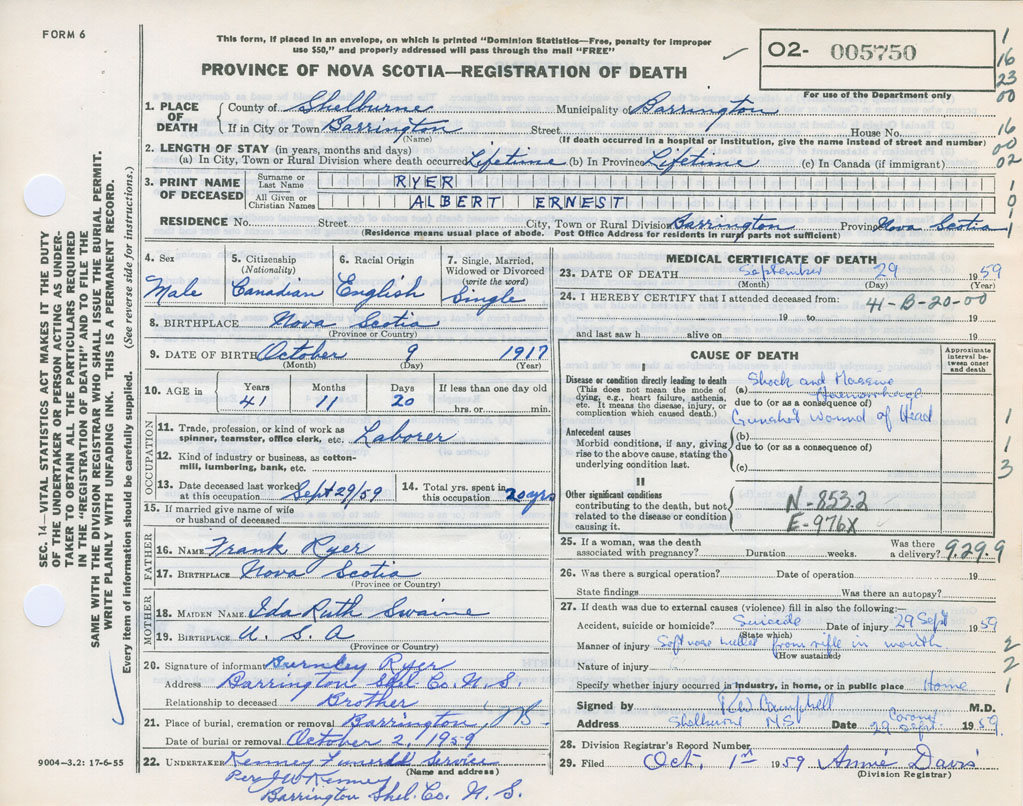 FORM 6
This form, if placed in an envelope, on which is printed "Dominion Statistics—Free, penalty for improper
use $50," and properly addressed will pass through the mail "FREE"
PROVINCE OF NOVA SCOTIA—REGISTRATION OF DEATH
O2- 005750
For use of the Department only
1
16
23
00
1. PLACE OF DEATH County of Shelburne Municipality of Barrington
If in City or Town Barrington Street House No. 16
(Name) (If death occurred in a hospital or Institution, give the name instead of street and number) 00
2. LENGTH OF STAY (in years, months and days)
(a) In City, Town or Rural Division where death occurred Lifetime (b) In Province Lifetime (c) In Canada (if immigrant) 02
3. PRINT NAME OF DECEASED Surname or Last Name RYER 1
All Given or Christian Names ALBERT ERNEST 0
1
RESIDENCE No. Street City, Town or Rural Division Barrington Province Nova Scotia 1
(Residence means usual place of abode. Post Office Address for residents in rural parts not sufficient)
4. Sex
Male
5. Citizenship
(Nationality)
Canadian
6. Racial Origin
English
7. Single, Married,
Widowed or Divorced
(write the word)
Single
8. BIRTHPLACE Nova Scotia
(Province or Country)
9. DATE OF BIRTH October 9 1917
(Month) (Day) (Year)
10. AGE in Years Months Days If less than one day old
41 11 20 hrs. or min.
OCCUPATION
11. Trade, profession, or kind of work as
spinner, teamster, office clerk, etc. Laborer
12. Kind of industry or business, as cotton-
mill, lumbering, bank, etc.
13. Date deceased last worked
at this occupation Sept 29/59
14. Total yrs. spent in
this occupation 20 yrs
15. If married give name of wife
or husband of deceased
FATHER
16. NAME Frank Ryer
17. BIRTHPLACE Nova Scotia
(Province or Country)
MOTHER
18. MAIDEN NAME Ida Ruth Swaine
19. BIRTHPLACE U. S. A
(Province or Country)
20. Signature of informant Burnley Ryer
Address Barrington Shel. Co. N. S.
Relationship to deceased Brother
21. Place of burial, cremation or removal Barrington, N.S.
Date of burial or removal October 2, 1959
22. UNDERTAKER Kenney Funeral Service
(Name and address)
Per Kenney
Barrington Shel. Co. N. S.
MEDICAL CERTIFICATE OF DEATH
23. DATE OF DEATH September 29 1959
(Month) (Day) (Year)
24. I HEREBY CERTIFY that I attended deceased from: 41-B-20-00
19 to 19
and last saw h alive on 19
CAUSE OF DEATH
Approximate
interval be-
tween onset
and death
I
Disease or condition directly leading to death
(This does not mean the mode of
dying, e.g., heart failure, asthenia,
etc. It means the disease, injury, or
complication which caused death.)
Shock and Massive
(a) Haemorrhage
due to (or as a consequence of)
Gunshot wound of Head
Antecedent causes
Morbid conditions, if any, giving
rise to the above cause, stating the
underlying condition last.
(b)
due to (or as a consequence of)
(c)
1
1
3
II
Other significant conditions
contributing to the death, but not
related to the disease or condition
causing it.
N-853.2
E-976X
25. If a woman, was the death
associated with pregnancy? Duration weeks. Was there
a delivery? 9.29.9
26. Was there a surgical operation? Date of operation 19
State findings Was there an autopsy?
27. If death was due to external causes (violence) fill in also the following:—
Accident, suicide or homicide? Suicide Date of injury 29 Sept 1959
(State which)
Manner of injury Soft nose bullet from rifle in mouth 2
(How sustained)
Nature of injury 2
Specify whether injury occurred in industry, in home, or in public place Home 1
Signed by Campbell M.D.
Coroner
Address Shelburne NS Date 29 Sept. 1959
28. Division Registrar's Record Number
29. Filed Oct. 1st 1959 Annie Davis
(Division Registrar)
SEC. 14—VITAL STATISTICS ACT MAKES IT THE DUTY
OF THE UNDERTAKER OR PERSON ACTING AS UNDER-
TAKER TO OBTAIN ALL THE PARTICULARS REQUIRED
IN THE "REGISTRATION OF DEATH" AND TO FILE THE
SAME WITH THE DIVISION REGISTRAR WHO SHALL ISSUE THE BURIAL PERMIT.
WRITE PLAINLY WITH UNFADING INK. THIS IS A PERMANENT RECORD.
Every item of information should be carefully supplied. (See reverse side for instructions.)
9004-3.2: 17-6-55